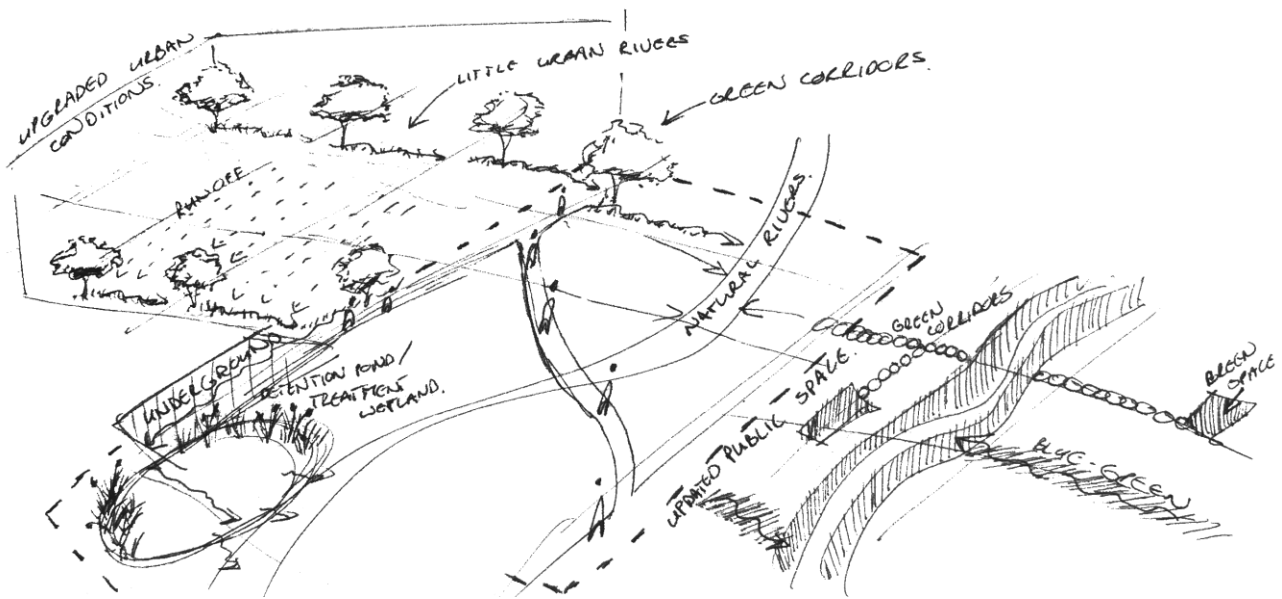 UPGRADED URBAN
CONDITIONS.
LITTLE URBAN RIVERS
GREEN CORRIDORS.
RUNOFF
NATURAL RIVERS.
UNDERGROUND
DETENTION POND/
TREATMENT
WETLAND.
UPDATED PUBLIC SPACE.
GREEN
CORRIDORS
GREEN
SPACE
BLUE GREEN